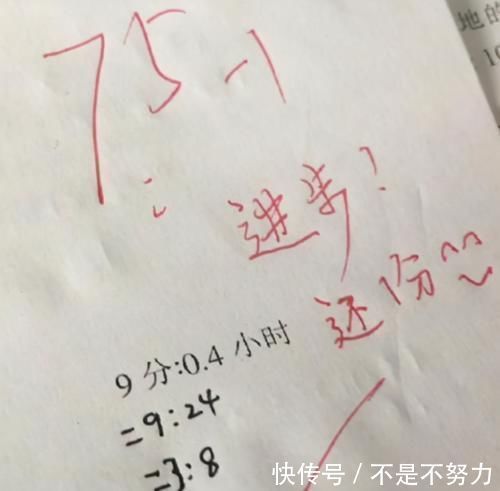 75-1
地的
进步!
还份
9分:0.4小时
=9:24
=3:8
快传号/不是不努力